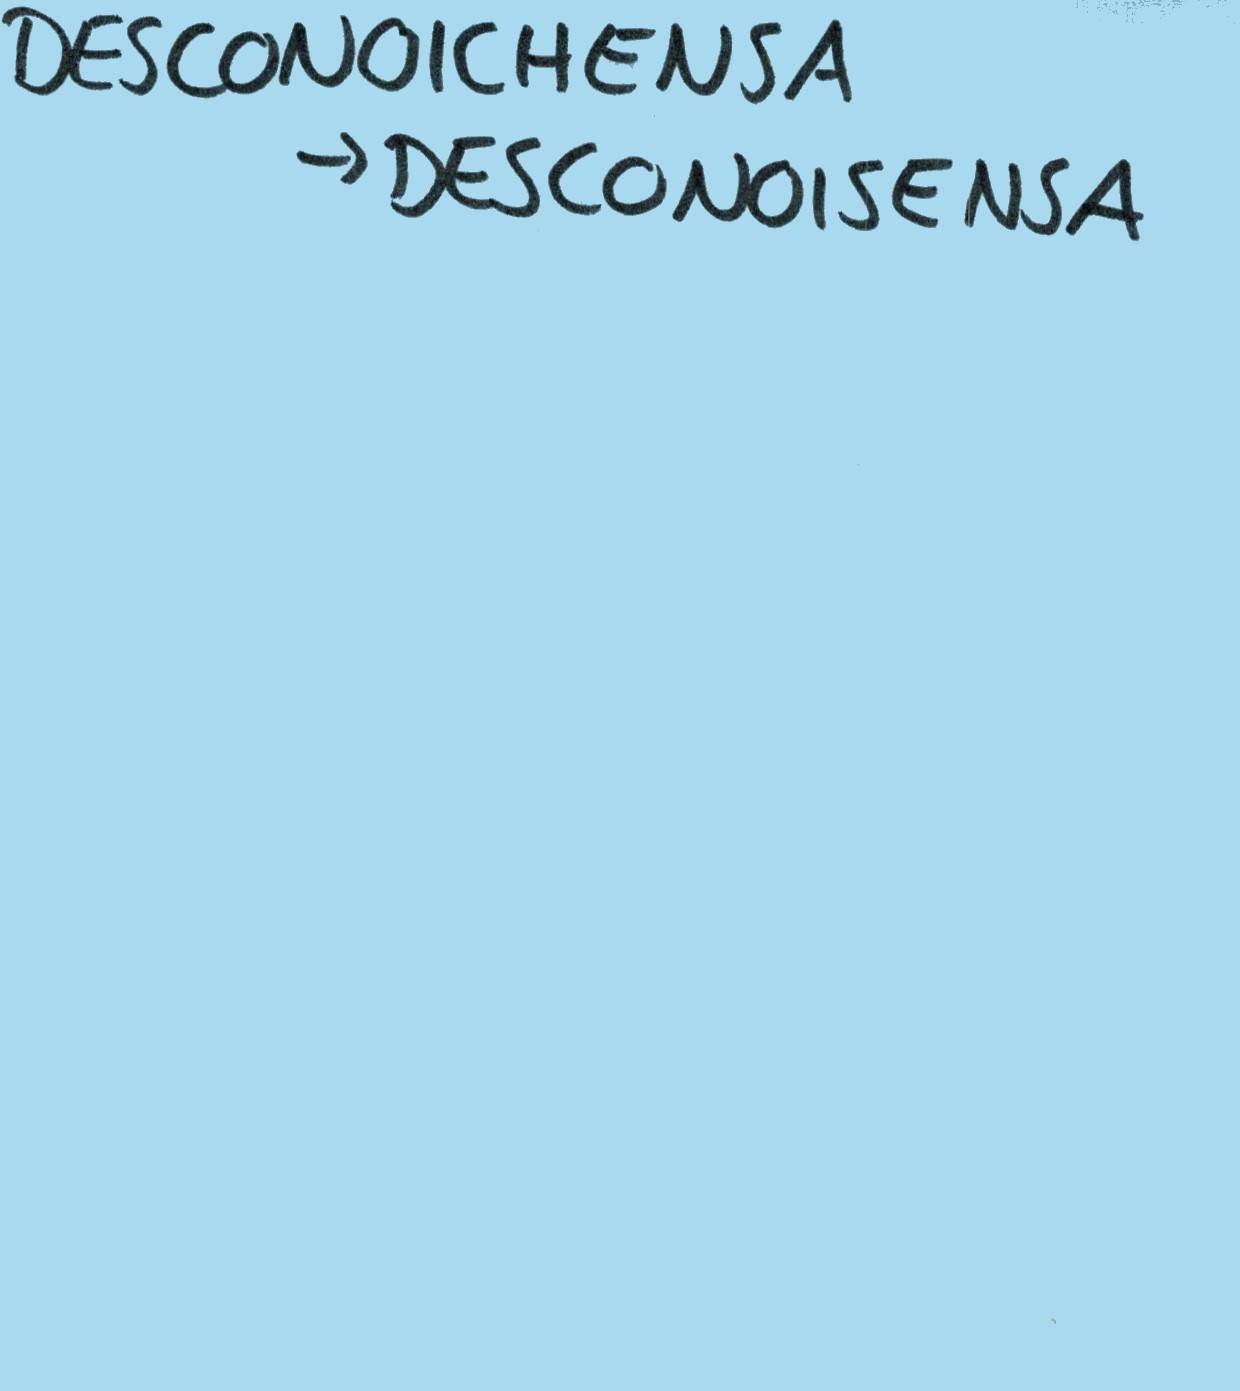 DESCONOICHENSA
→ DESCONOISENSA